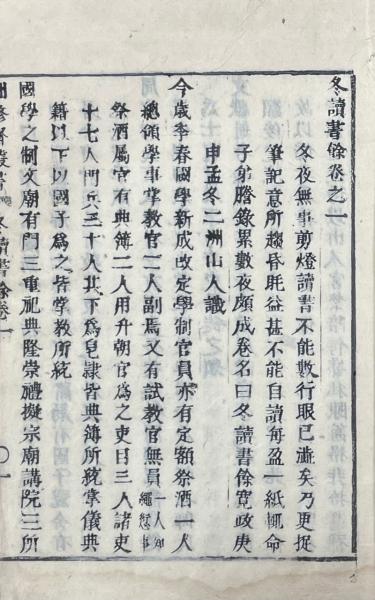 冬讀書餘卷之一
冬夜無事剪燈讀書不能數行眼已澁矣乃更捉
筆記意所趨昏眊益甚不能自讀每盈一紙輒命
子弟謄錄累數夜頗成卷名曰冬讀書餘寛政庚
申孟冬二洲山人識
今歳季春國學新成改定學制官員亦有定額祭酒一人
總領學事掌教官二人副焉又有試教官無員
祭酒屬官有典簿二人用升朝官爲之吏目三人諸吏
十七人門兵三十人其下爲皂隷皆典簿所統掌儀典
籍以下以國子爲之皆掌教所統
國學之制文廟有門三重祀典隆崇禮擬宗廟講院三所
冬讀書餘卷一
〇一